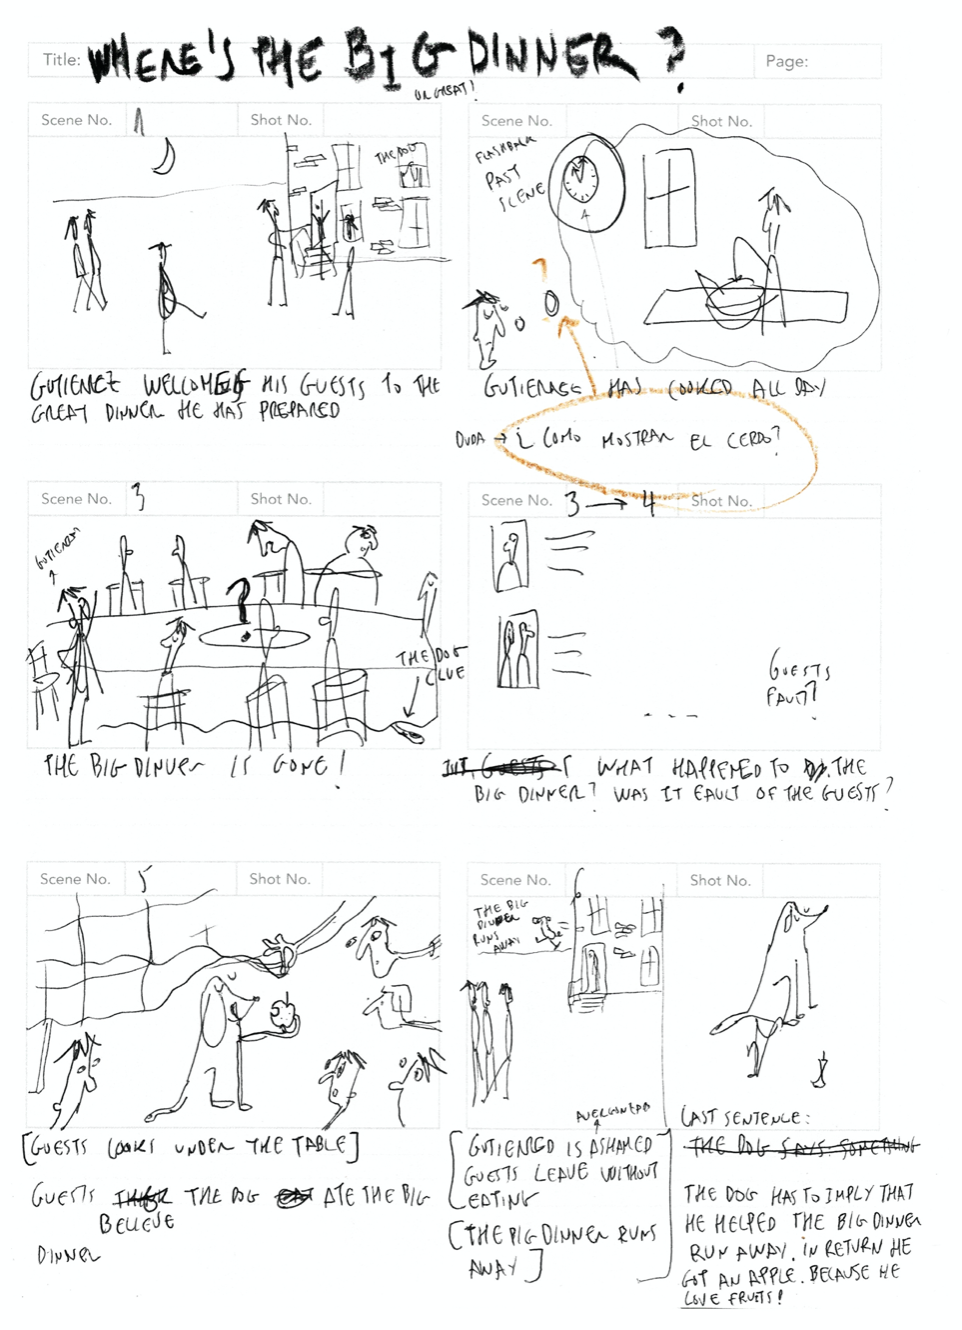 Title: WHERE'S THE BIG DINNER?
OR GREAT!
Page:
Scene No. 1 Shot No.
THE DOG
GUTIERREZ WELLCOMES HIS GUESTS TO THE
GREAT DINNER HE HAS PREPARED
Scene No. Shot No.
FLASHBACK
PAST
SCENE
?
GUTIERREZ HAS COOKED ALL DAY
DUDA → ¿COMO MOSTRAR EL CERDO?
Scene No. 3 Shot No.
GUTIERREZ
?
THE DOG
CLUE
THE BIG DINNER IS GONE!
Scene No. 3 → 4 Shot No.
GUESTS
FAULT?
WHAT HAPPENED TO THE
BIG DINNER? WAS IT FAULT OF THE GUESTS?
Scene No. 5 Shot No.
[GUESTS LOOKS UNDER THE TABLE]
GUESTS THINK THE DOG ATE THE BIG
BELIEVE
DINNER
Scene No. 6 Shot No.
THE BIG
DINNER
RUNS
AWAY
AVERGONZADO
[GUTIERREZ IS ASHAMED
GUESTS LEAVE WITHOUT
EATING
[THE BIG DINNER RUNS
AWAY]
LAST SENTENCE:
THE DOG SAYS SOMETHING
THE DOG HAS TO IMPLY THAT
HE HELPED THE BIG DINNER
RUN AWAY. IN RETURN HE
GOT AN APPLE. BECAUSE HE
LOVE FRUITS!